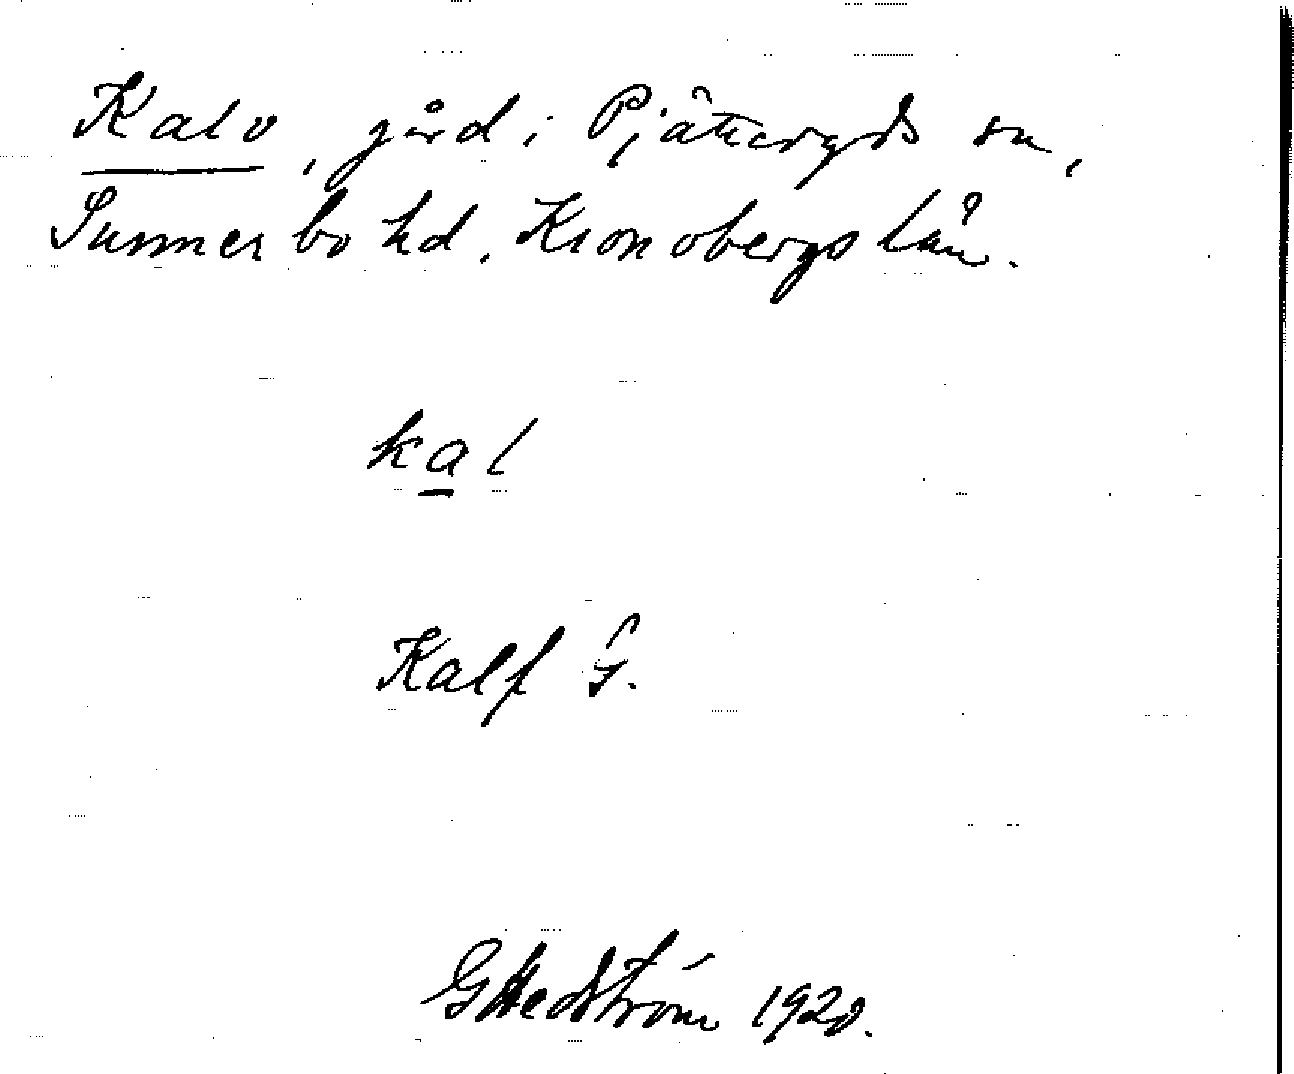 Kalv, gård i Pjätteryds sn,
Sunnerbo hd. Kronobergs län.
kal
Kalf
GHedström 1920.